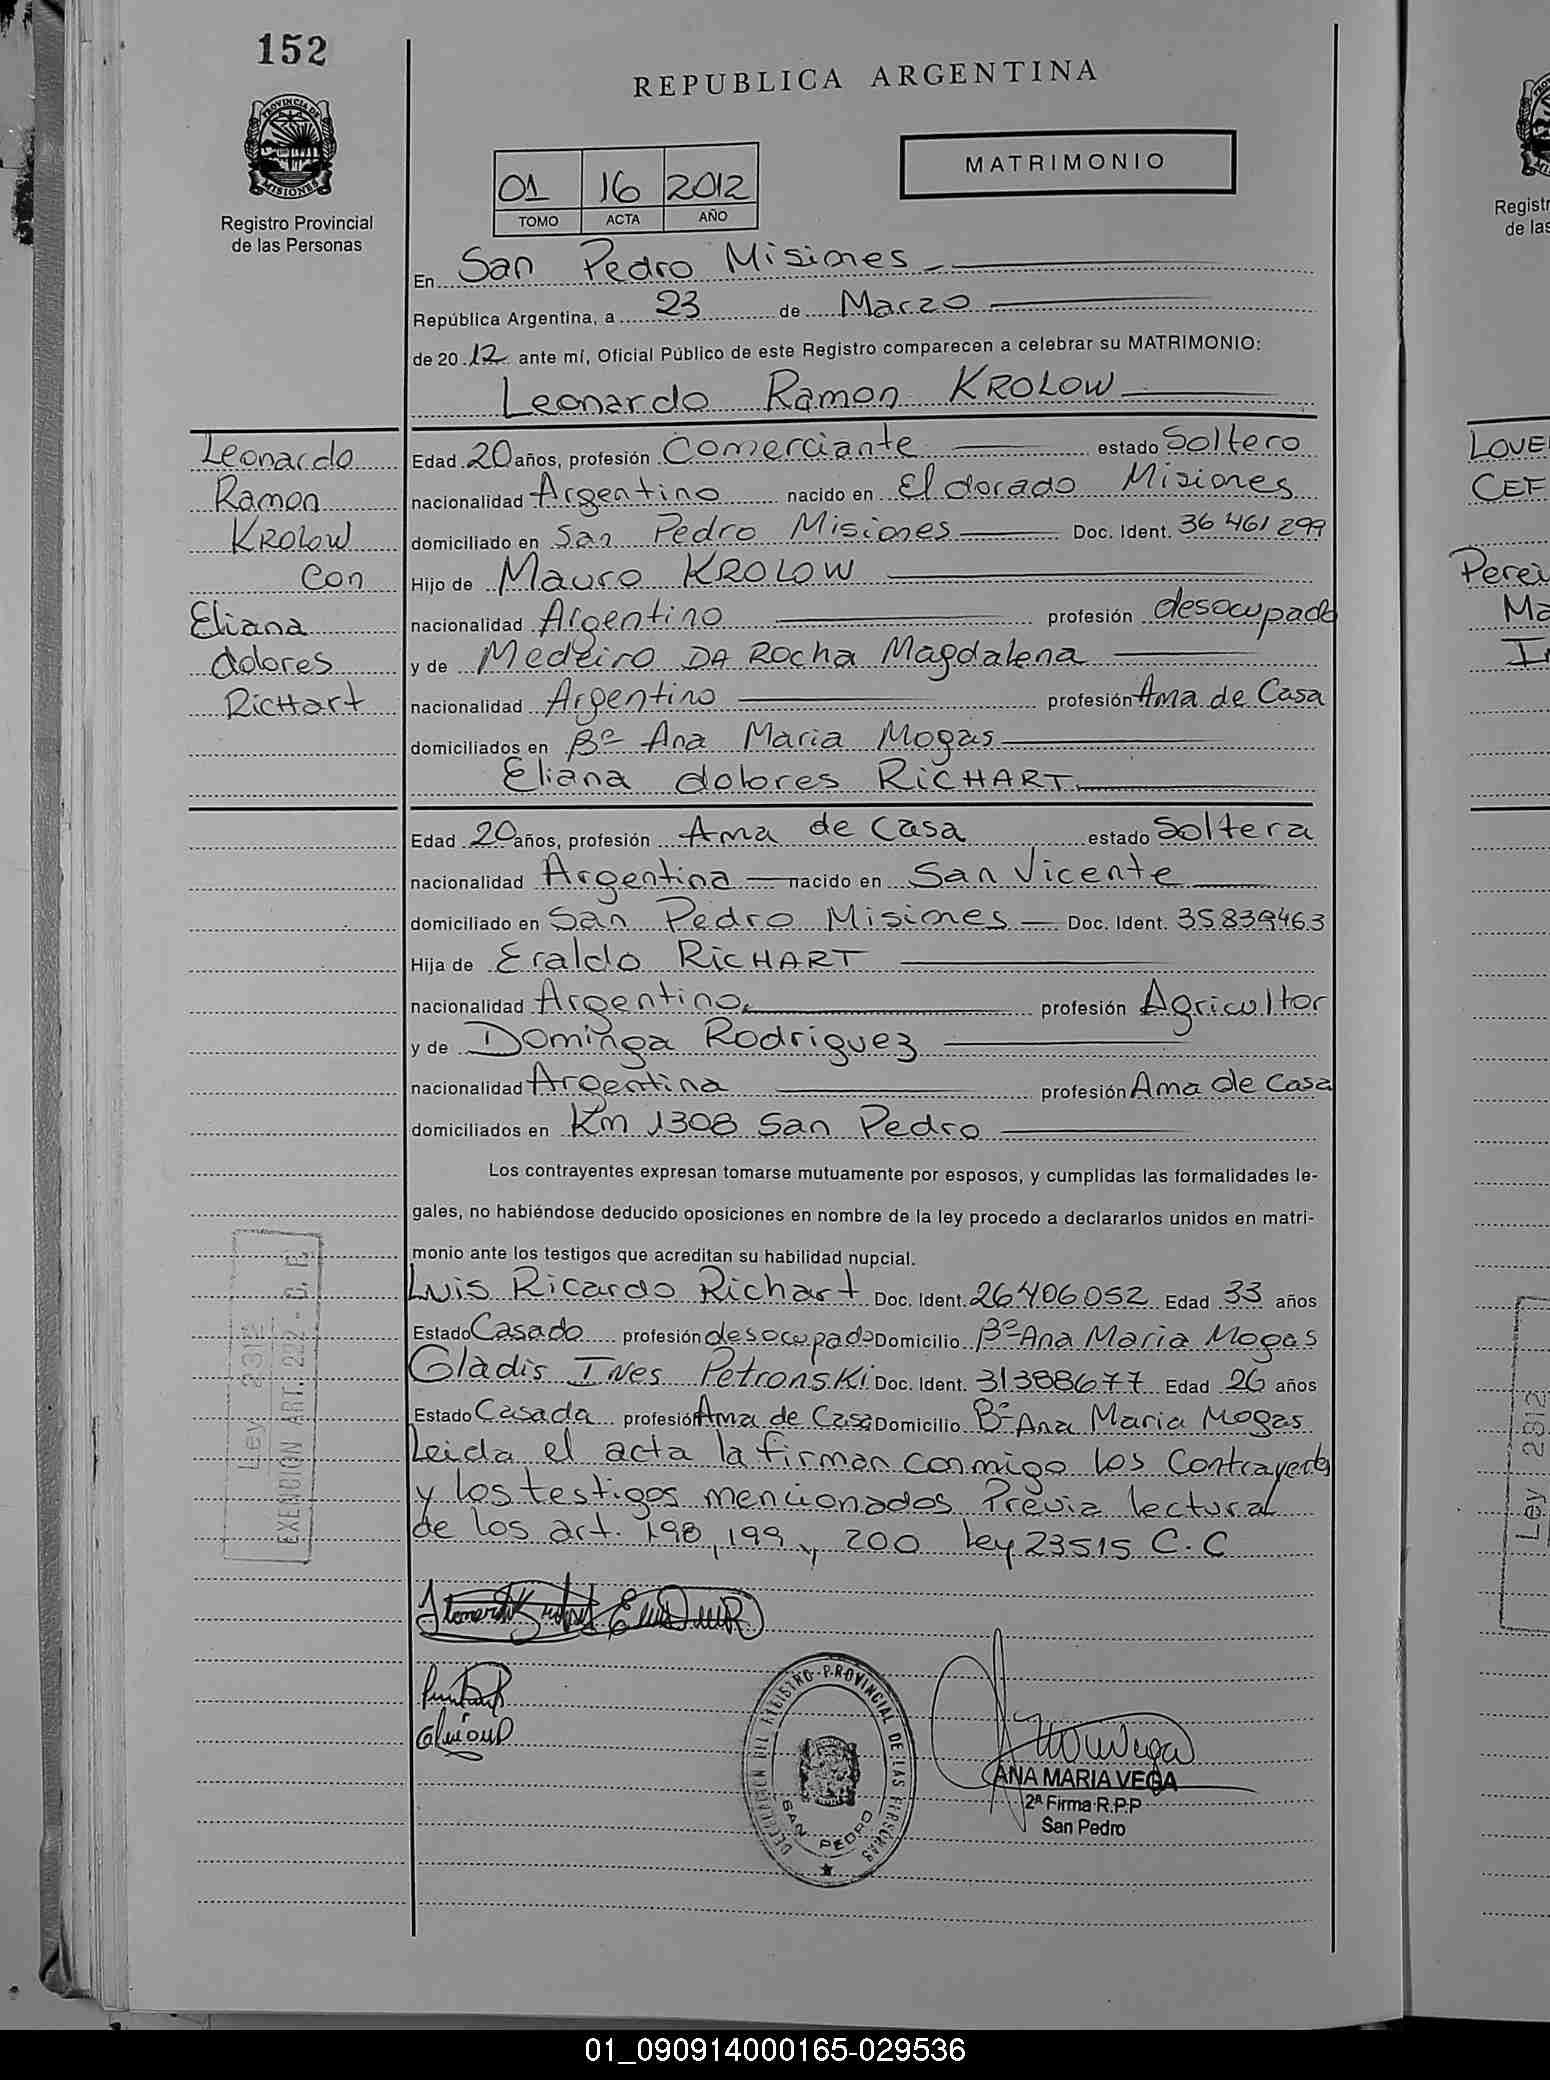 152
REPUBLICA ARGENTINA
PROVINCIA DE
MISIONES
Registro Provincial
de las Personas
MATRIMONIO
01 16 2012
TOMO ACTA AÑO
En San Pedro Misiones
República Argentina, a 23 de Marzo
de 2012 ante mí, Oficial Público de este Registro comparecen a celebrar su MATRIMONIO:
Leonardo Ramon KROLOW
Leonardo
Ramon
KROLOW
Con
Eliana
dolores
RicHart
Edad 20 años, profesión Comerciante estado Soltero
nacionalidad Argentino nacido en Eldorado Misiones
domiciliado en San Pedro Misiones Doc. Ident. 36 461 299
Hijo de Mauro KROLOW
nacionalidad Argentino profesión desocupado
y de Medeiro DA Rocha Magdalena
nacionalidad Argentino profesión Ama de Casa
domiciliados en Bº Ana Maria Mogas
Eliana dolores RiCHART
Edad 20 años, profesión Ama de Casa estado Soltera
nacionalidad Argentina nacido en San Vicente
domiciliado en San Pedro Misiones Doc. Ident. 35839463
Hija de Eraldo RiCHART
nacionalidad Argentino profesión Agricultor
y de Dominga Rodriguez
nacionalidad Argentina profesión Ama de Casa
domiciliados en Km 1308 San Pedro
Los contrayentes expresan tomarse mutuamente por esposos, y cumplidas las formalidades le-
gales, no habiéndose deducido oposiciones en nombre de la ley procedo a declararlos unidos en matri-
monio ante los testigos que acreditan su habilidad nupcial.
Luis Ricardo Richart Doc. Ident. 26406052 Edad 33 años
Estado Casado profesión desocupado Domicilio Bº Ana Maria Mogas
Gladis Ines Petronski Doc. Ident. 31388677 Edad 26 años
Estado Casada profesión Ama de Casa Domicilio Bº Ana Maria Mogas
Leida el acta la firman conmigo los Contrayentes
y los testigos mencionados Previa lectural
de los art. 198, 199 y 200 ley 23515 C.C
Ley 2312
EXENCION ART. 222 - C. F.
DELEGACION DEL REGISTRO PROVINCIAL DE LAS PERSONAS
SAN PEDRO
ANA MARIA VEGA
2ª Firma R.P.P
San Pedro
Registr
de las
LOVE
CEF
Perei
Ma
Ley 2312
01_090914000165-029536